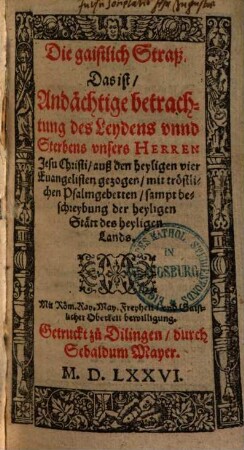 Die gaistlich Straß.
Das ist/
Andächtige betrach-
tung des Leydens vnnd
Sterbens vnsers HERREN
Jesu Christi/ auß den heyligen vier
Euangelisten gezogen/ mit tröstli-
chen Psalmgebetten/ sampt be-
schreybung der heyligen
Stätt des heyligen
Lands.
MATHOL. STUDIENFONDS
IN
AUGSBURG
Mit Röm. Kay. May. Freyheit
licher Oberkeit bewilligung.
Getruckt zů Dilingen/ durch
Sebaldum Mayer.
M. D. LXXVI.